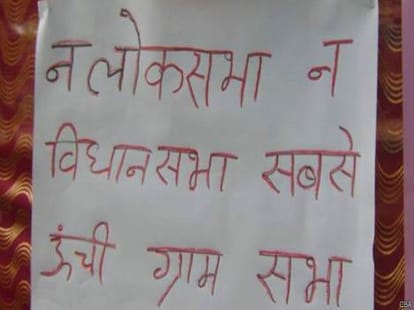 न लोकसभा न
विधानसभा सबसे
ऊंची ग्राम सभा
CBA